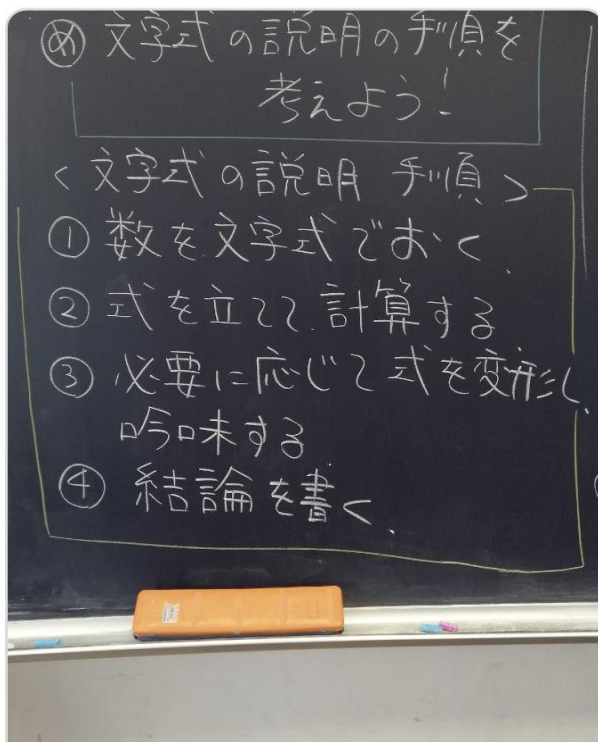 め 文字式の説明の手順を
考えよう!
<文字式の説明 手順>
① 数を文字式でおく
② 式を立てて計算する
③ 必要に応じて式を変形し、
吟味する
④ 結論を書く